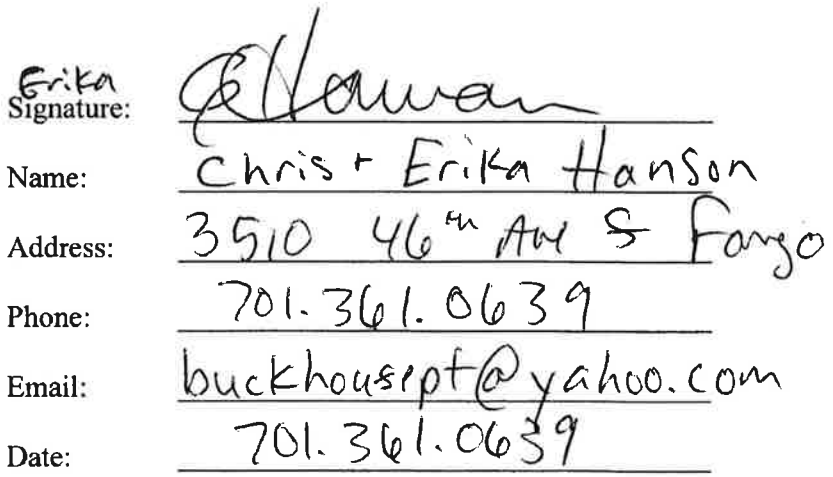 Erika
Signature: EHanson
Name: Chris + Erika Hanson
Address: 3510 46th Ave S Fargo
Phone: 701.361.0639
Email: buckhousept@yahoo.com
Date: 701.361.0639